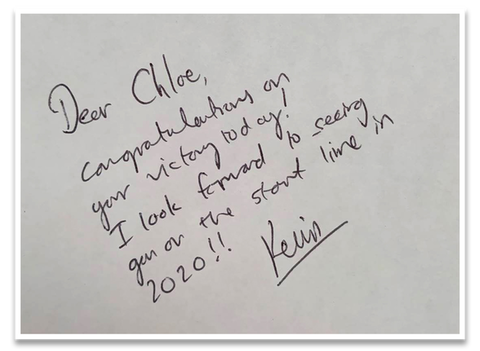 Dear Chloe,
Congratulations on
your victory today!
I look forward to seeing
you on the start line in
2020!!
Kevin